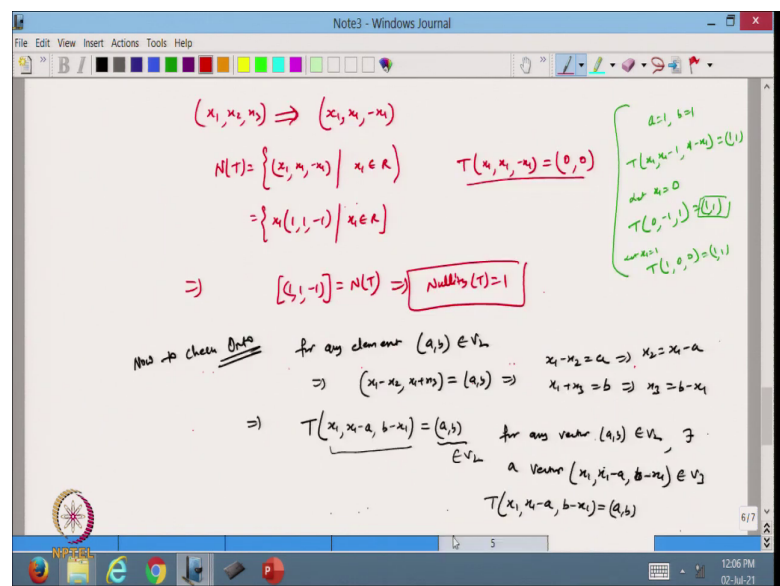 Note3 - Windows Journal
File Edit View Insert Actions Tools Help
(x₁, x₂, x₃) ⇒ (x₁, x₁, -x₁)
N(T) = {(x₁, x₁, -x₁) | x₁ ∈ R)
T(x₁, x₁, -x₁) = (0, 0)
= {x₁(1, 1, -1) | x₁ ∈ R]
⇒ [(1, 1, -1)] = N(T) ⇒ Nullity(T)=1
a=1, b=1
T(x₁, x₁-1, 1-x₁) = (1,1)
let x₁=0
T(0, -1, 1) = (1,1)
let x₁=1
T(1, 0, 0) = (1,1)
Now to check Onto for any element (a,b) ∈ V₂
⇒ (x₁-x₂, x₁+x₃) = (a,b) ⇒
x₁-x₂ = a ⇒ x₂ = x₁-a
x₁+x₃ = b ⇒ x₃ = b-x₁
⇒ T(x₁, x₁-a, b-x₁) = (a,b)
∈ V₂
for any vector (a,b) ∈ V₂, ∃
a vector (x₁, x₁-a, b-x₁) ∈ V₃
T(x₁, x₁-a, b-x₁) = (a,b)
6/7
5
NPTEL
12:06 PM
02-Jul-21